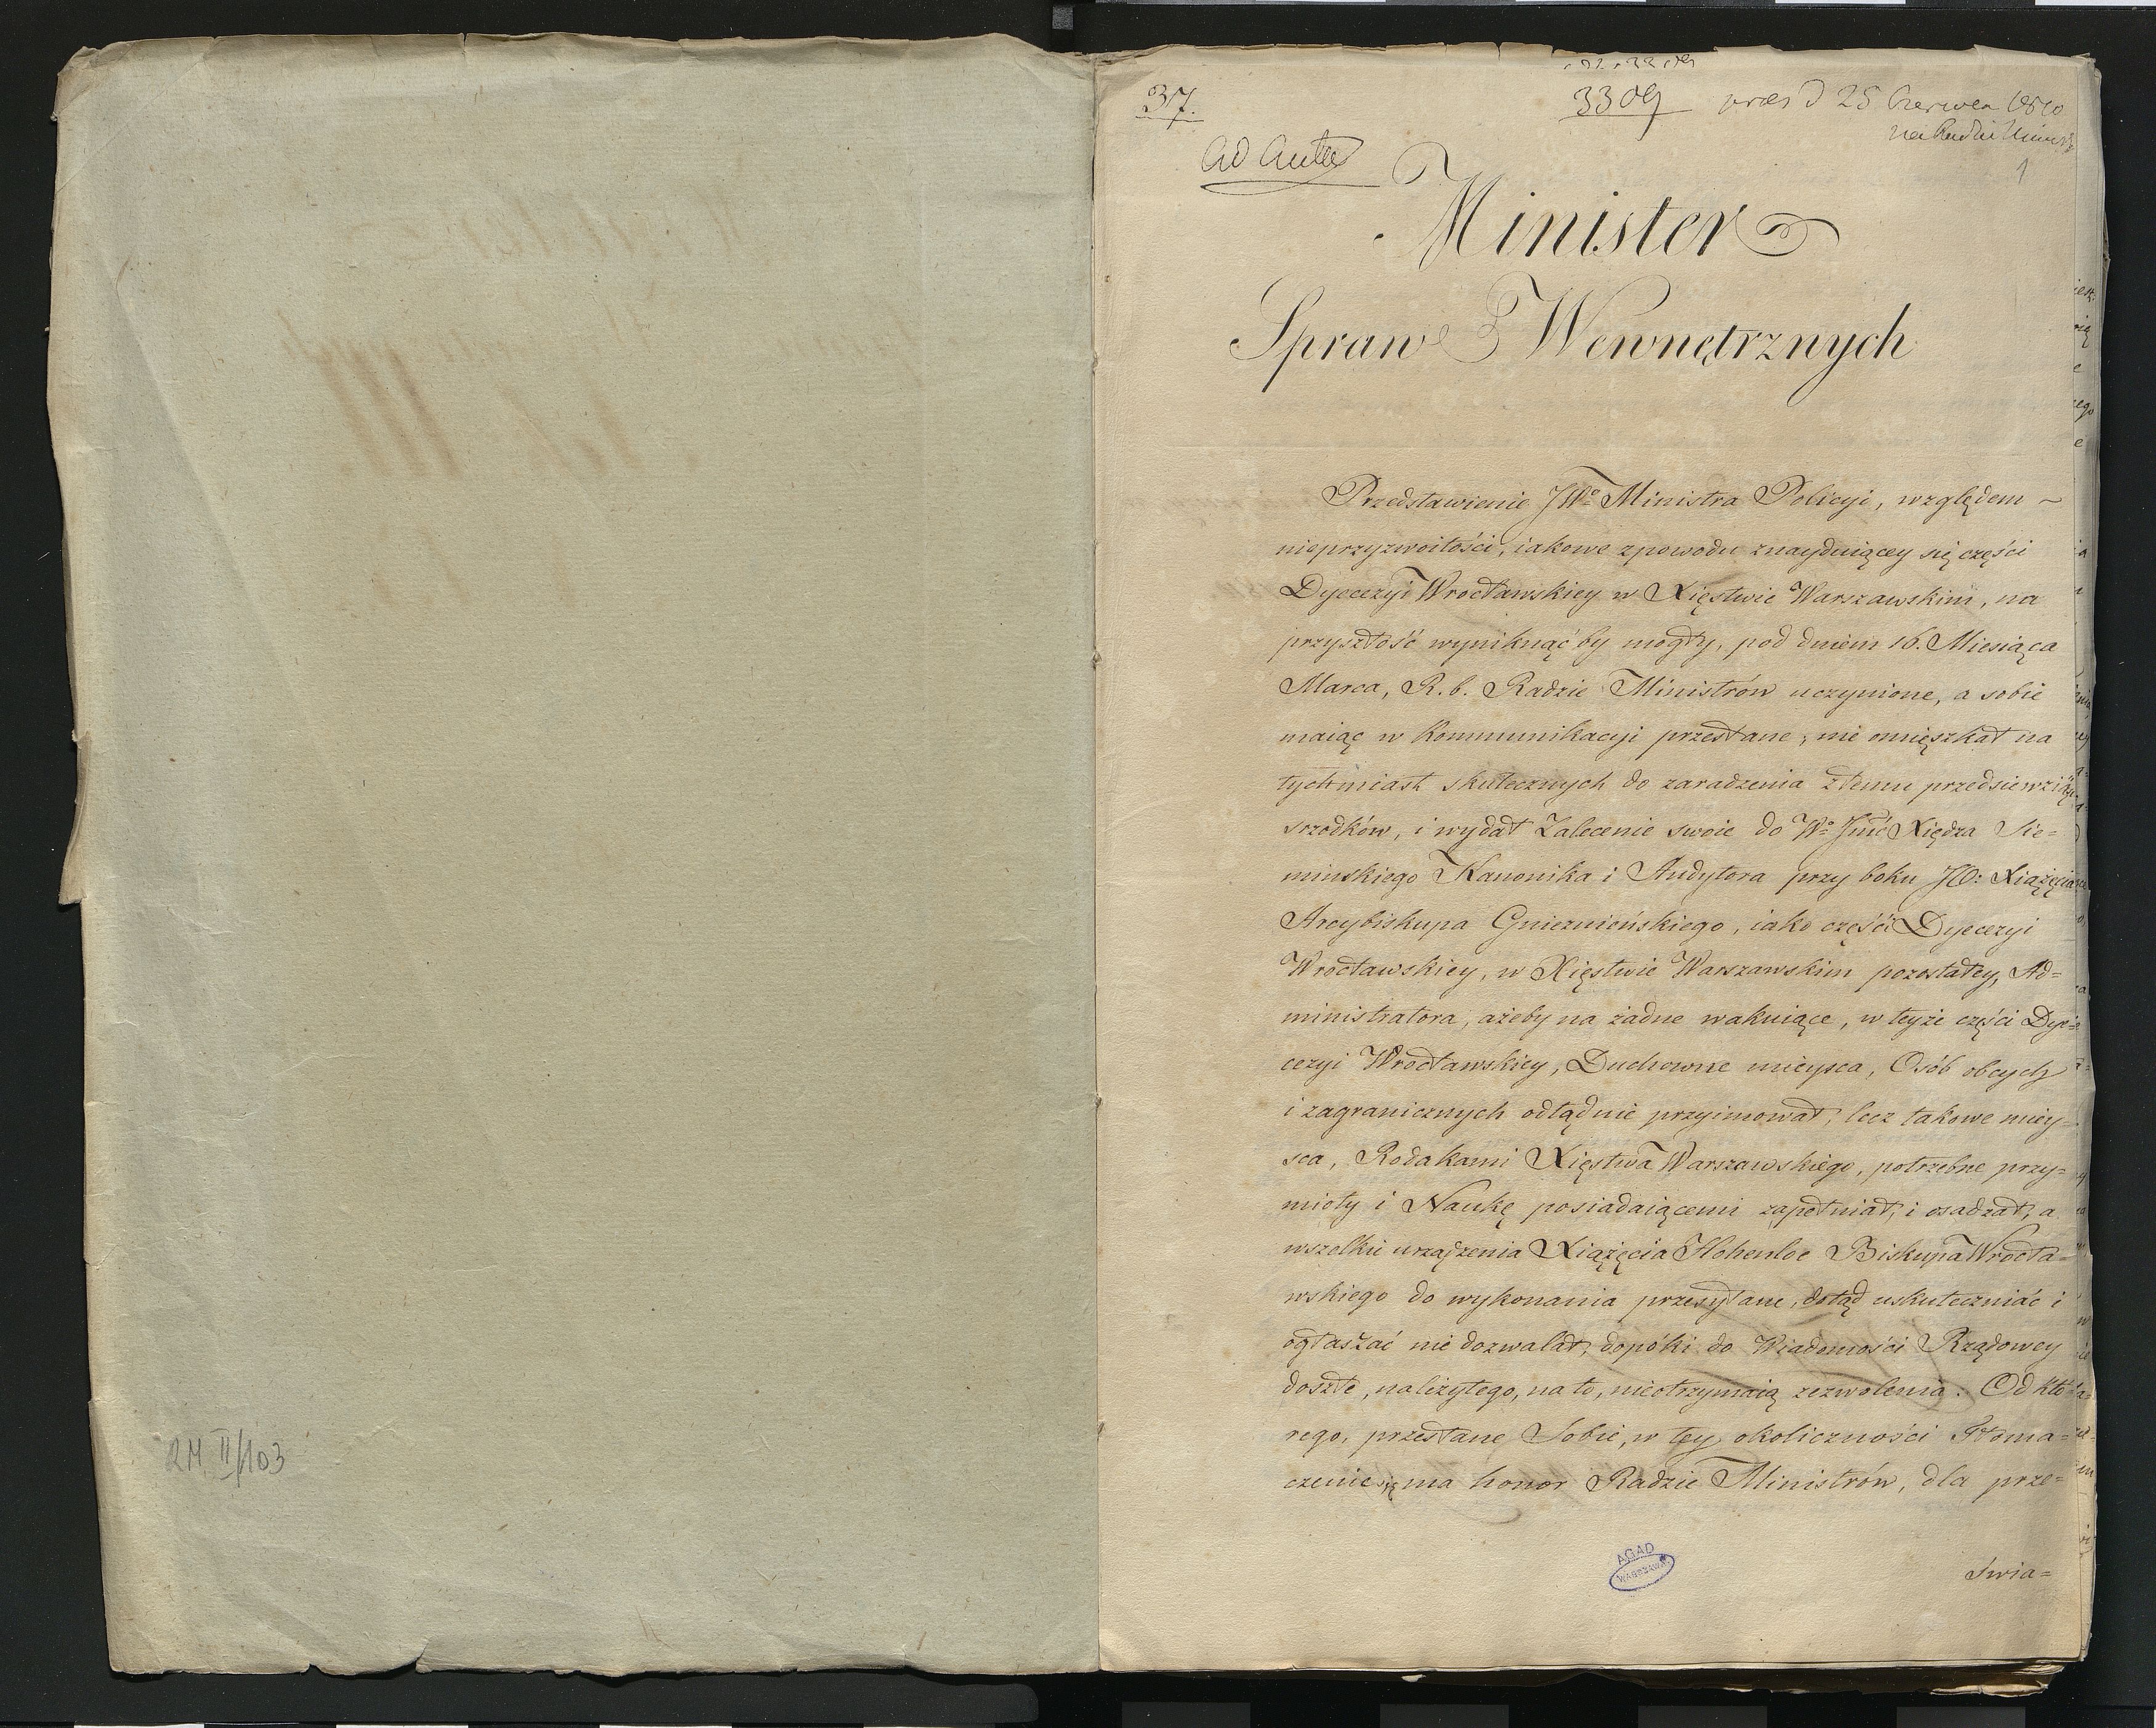 37.
3309 praes d 25 Czerwca 1810
na Radzie Minis
Ad Acta
1
Minister
Spraw Wewnętrznych
Przedstawienie JWo Ministra Policyi, względem ~
nieprzyzwoitości, iakowe zpowodu znayduiącey się części
Dyecezyi Wrocławskiey w Xięstwie Warszawskim, na
przyszłość wyniknąć by mogły, pod dniem 16. Miesiąca
Marca, R. b. Radzie Ministrów uczynione, a sobie
maiąc w Kommunikacyi przesłane, nie omięszkał na
tychmiast skutecznych do zaradzenia złemu przedsiewziąść
srzodków, i wydał Zalecenie swoie do Wo Jmć Xiędza Sie=
minskiego Kanonika i Audytora przy boku JO: Xiążęcia
Arcybiskupa Gnieznieńskiego, iako części Dyecezyi
Wrocławskiey, w Xięstwie Warszawskim pozostałey, Ad=
ministratora, ażeby na żadne wakuiące, w teyże części Dye=
cezyi Wrocławskiey, Duchowne mieysca, Osób obcych
i zagranicznych odtąd nie przyimował, lecz takowe miey=
sca, Rodakami Xięstwa Warszawskiego, potrzebne przy=
mioty i Naukę posiadaiącemi zapełniał, i osadzał, a
wszelkie urządzenia Xiążęcia Hohenloe Biskupa Wrocła=
wskiego do wykonania przesyłane, dotąd uskuteczniać i
ogłaszać nie dozwalał, dopóki do Wiadomości Rządowey
doszłe, należytego, na to, nieotrzymaią zezwolenia. Od któ=
rego, przesłane Sobie, w tey okoliczności Tłoma=
czenie się ma honor Radzie Ministrów, dla prze=
swia=
AGAD
WARSZAWA
RM II/103